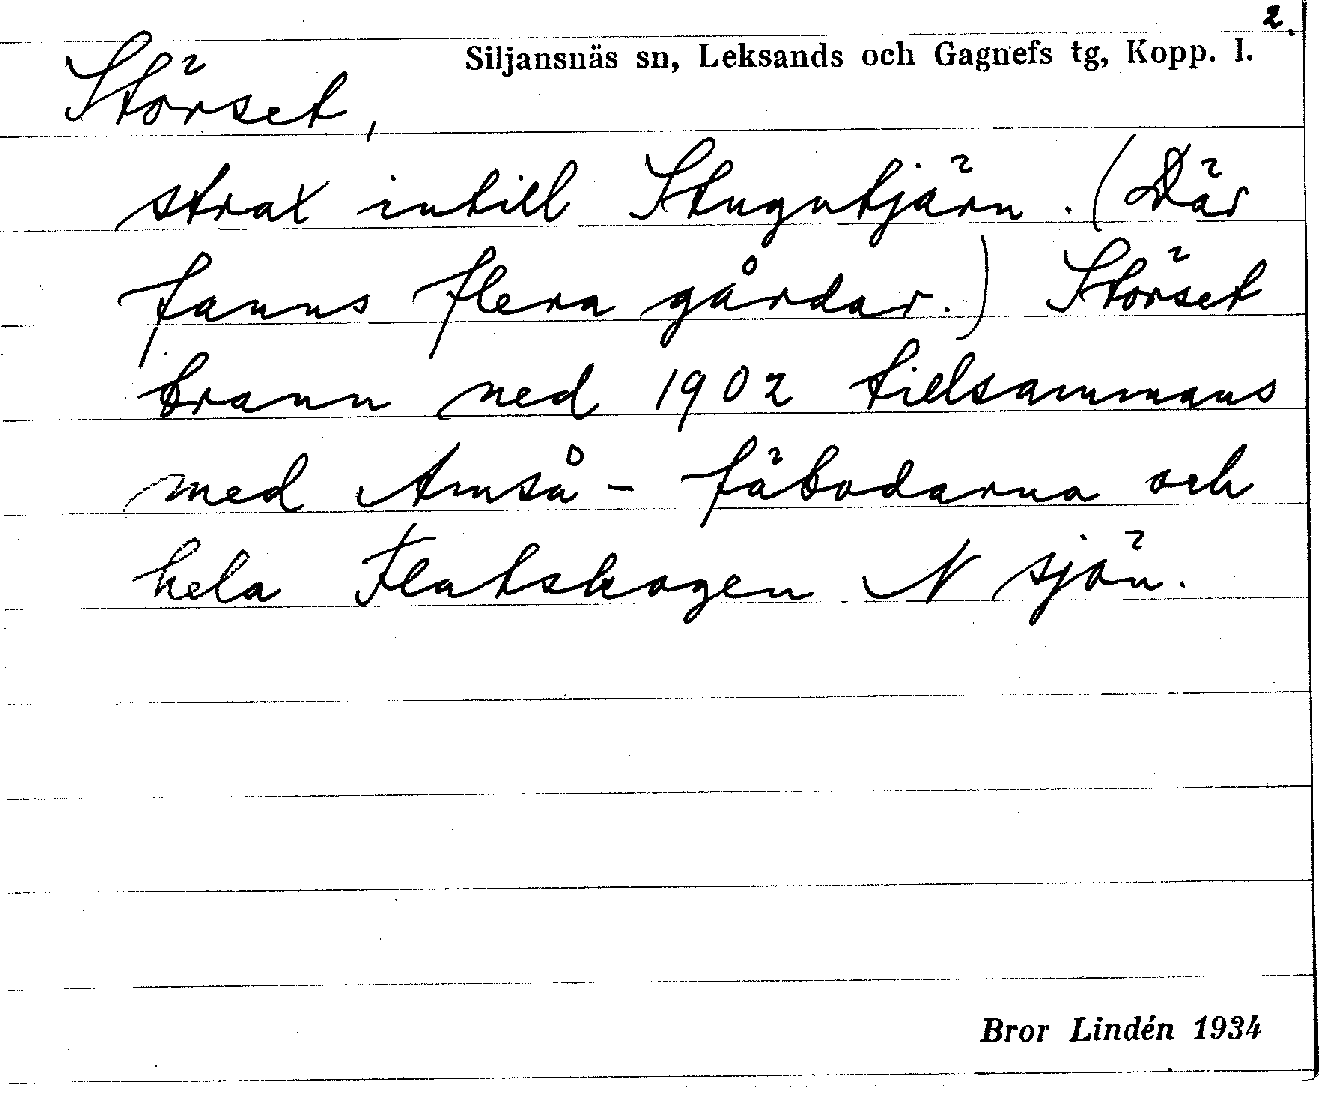 2.
Siljansnäs sn, Leksands och Gagnefs tg, Kopp. l.
Störset,
strax intill Stugutjärn. (Där
fanns flera gårdar.) Störset
brann ned 1902 tillsammans
med Amså-fäbodarna och
hela Flatskogen N sjön.
Bror Lindén 1934